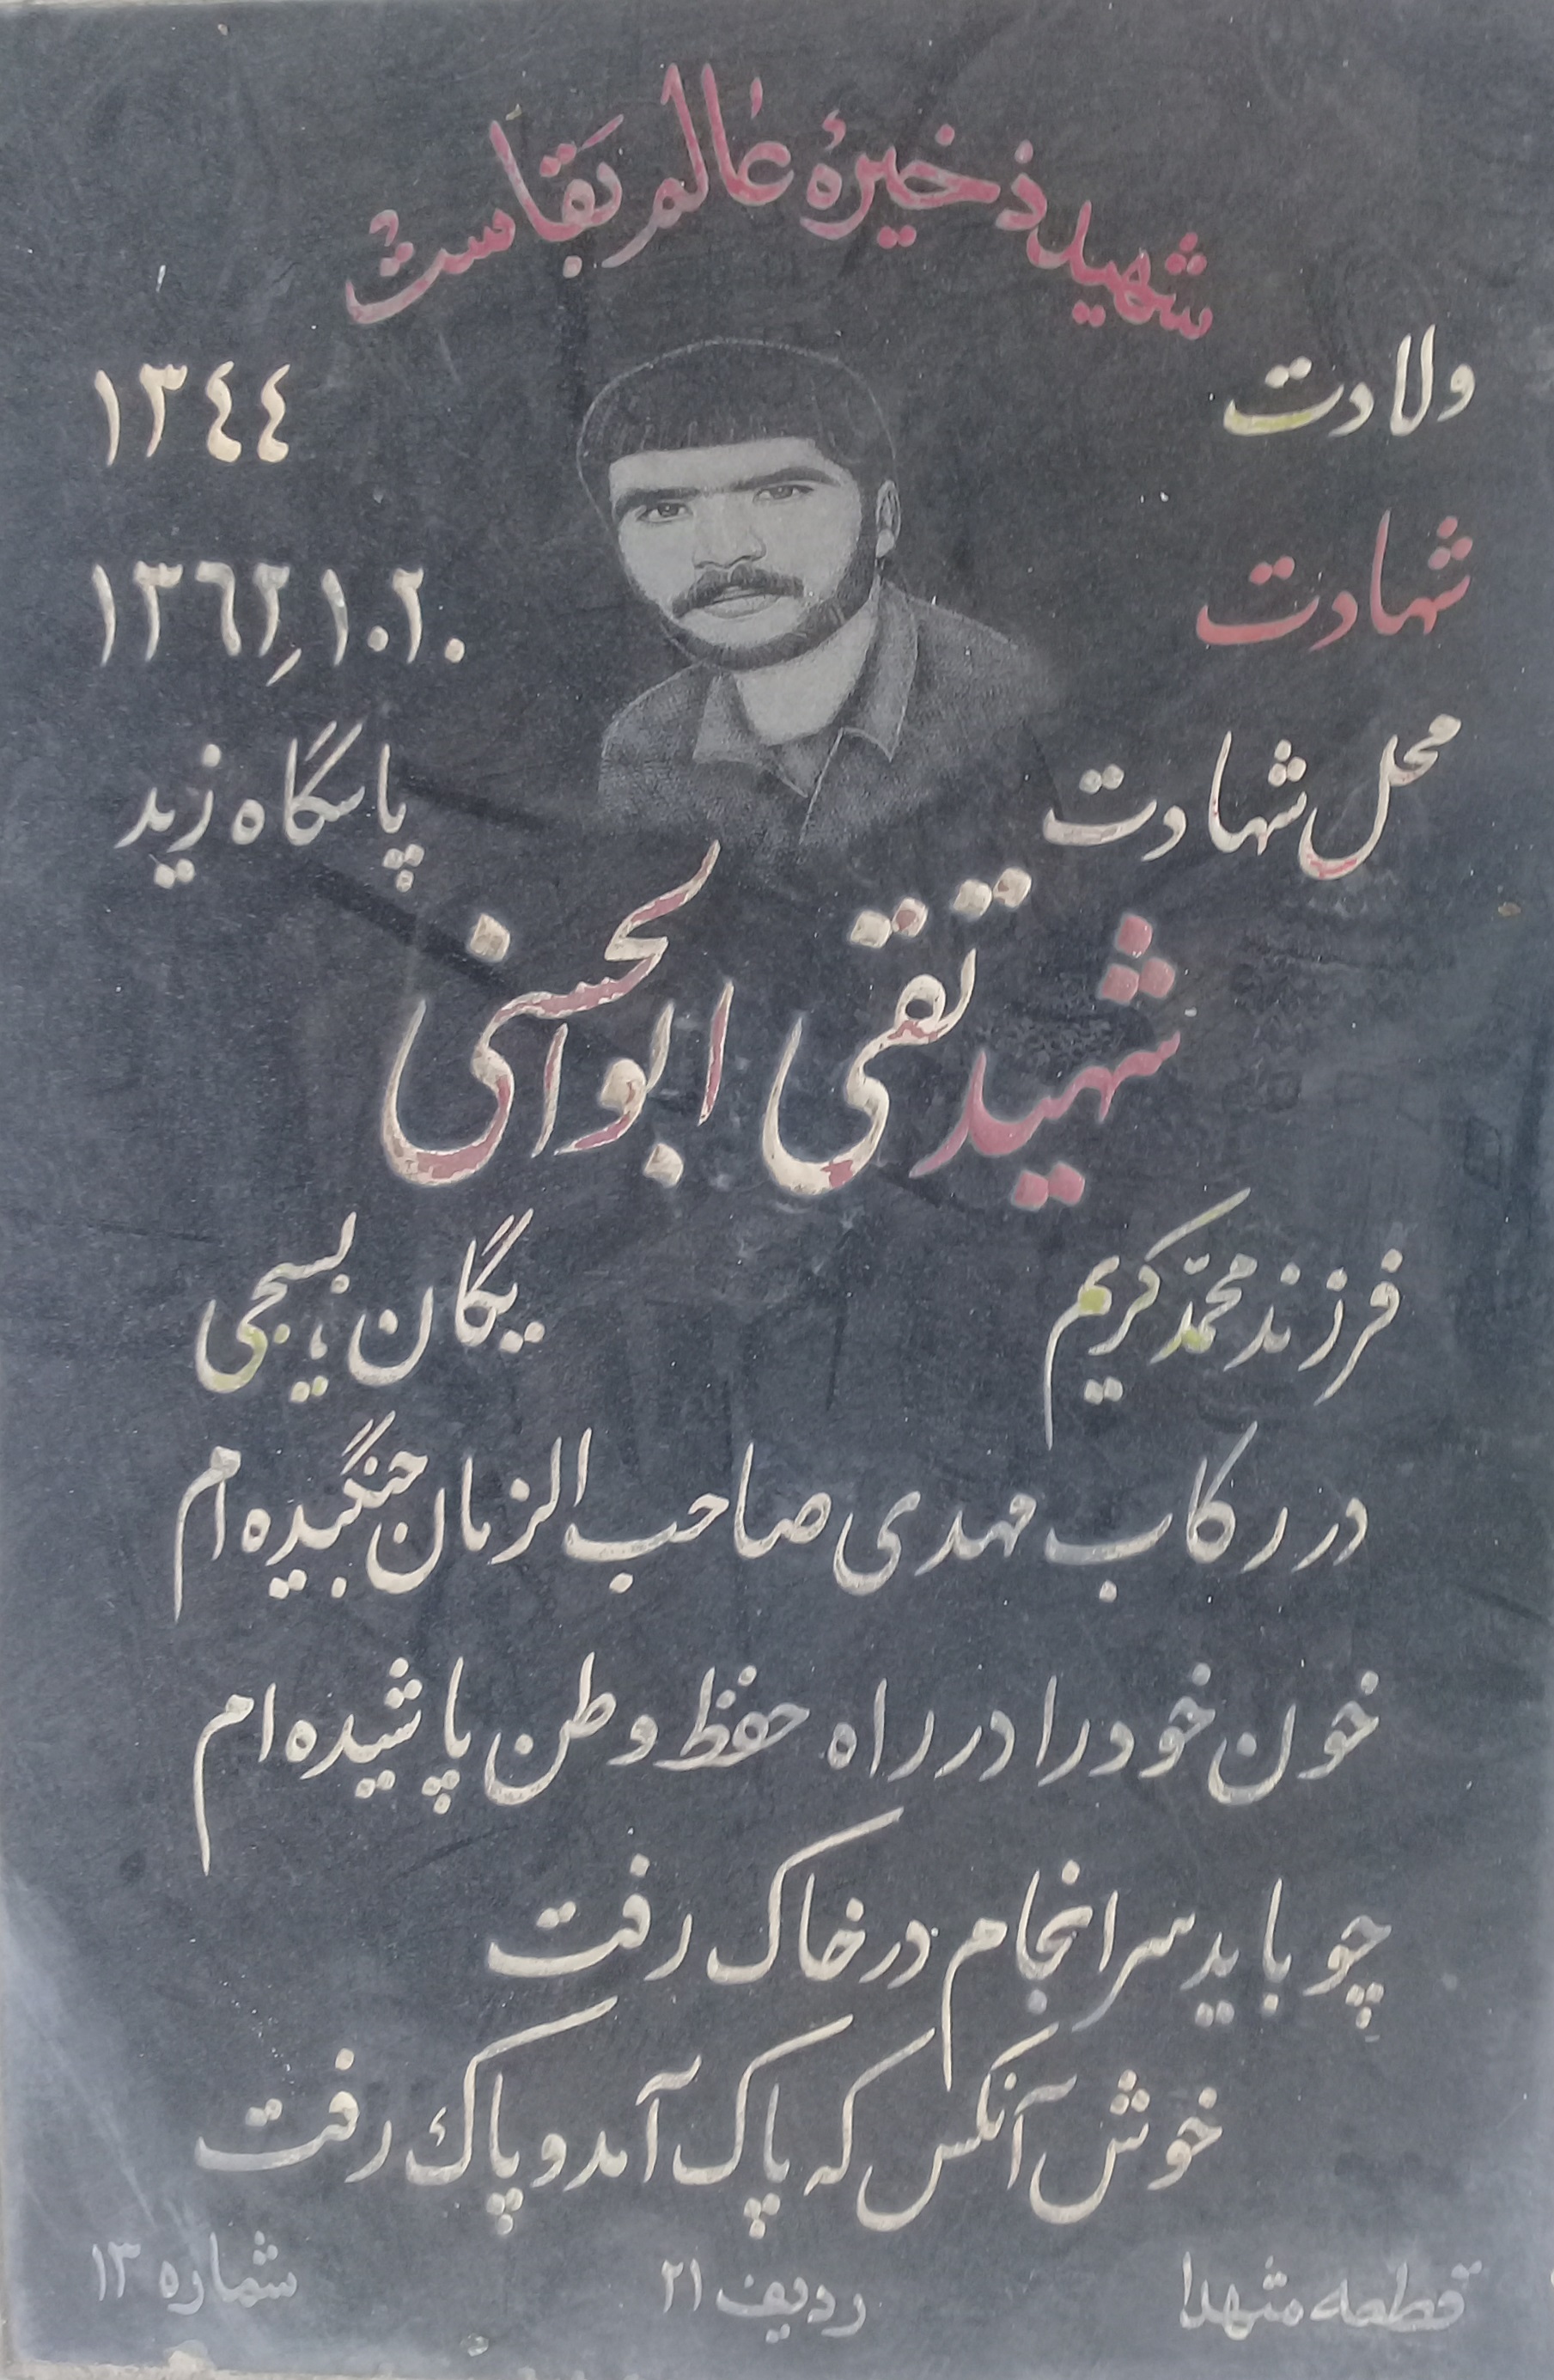 شهید ذخیرهٔ عالم بقاست
ولادت ١٣٤٤
شهادت ١٣٦٢٫١٠٢٠
محل شهادت پاسگاه زید
شهید تقی ابوالحسنی
فرزند محمّد کریم یگان بسیجی
در رکاب مهدی صاحب الزمان جنگیده ام
خون خود را در راه حفظ وطن پاشیده ام
چو باید سرانجام در خاک رفت
خوش آنکس که پاک آمد و پاک رفت
قطعه شهدا ردیف ٢١ شماره ١٣